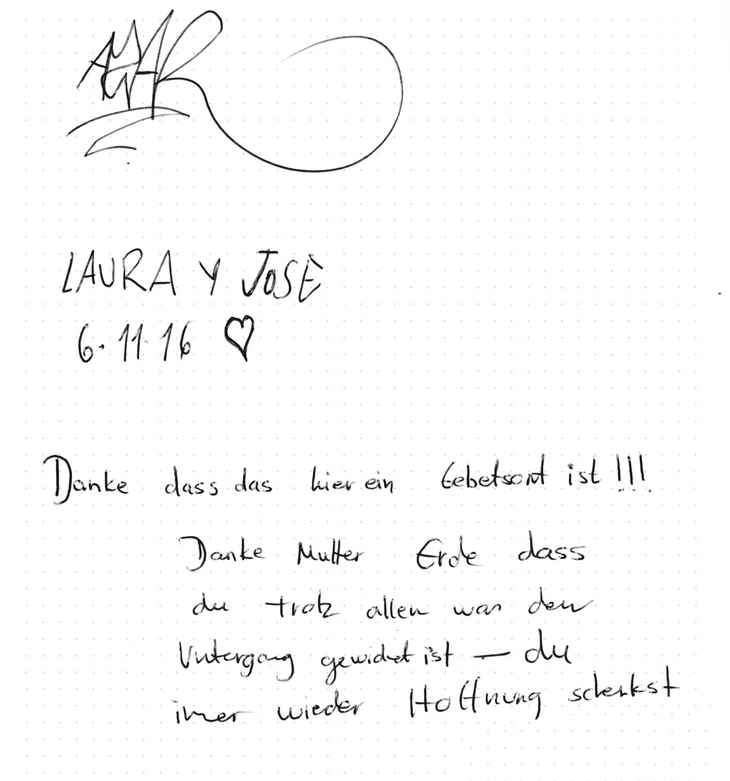 LAURA Y JOSÈ
6.11.16 ♡
Danke dass das hier ein Gebetsort ist !!!
Danke Mutter Erde dass
du trotz allen was den
Untergang gewidet ist — du
imer wieder Hoffnung schenkst